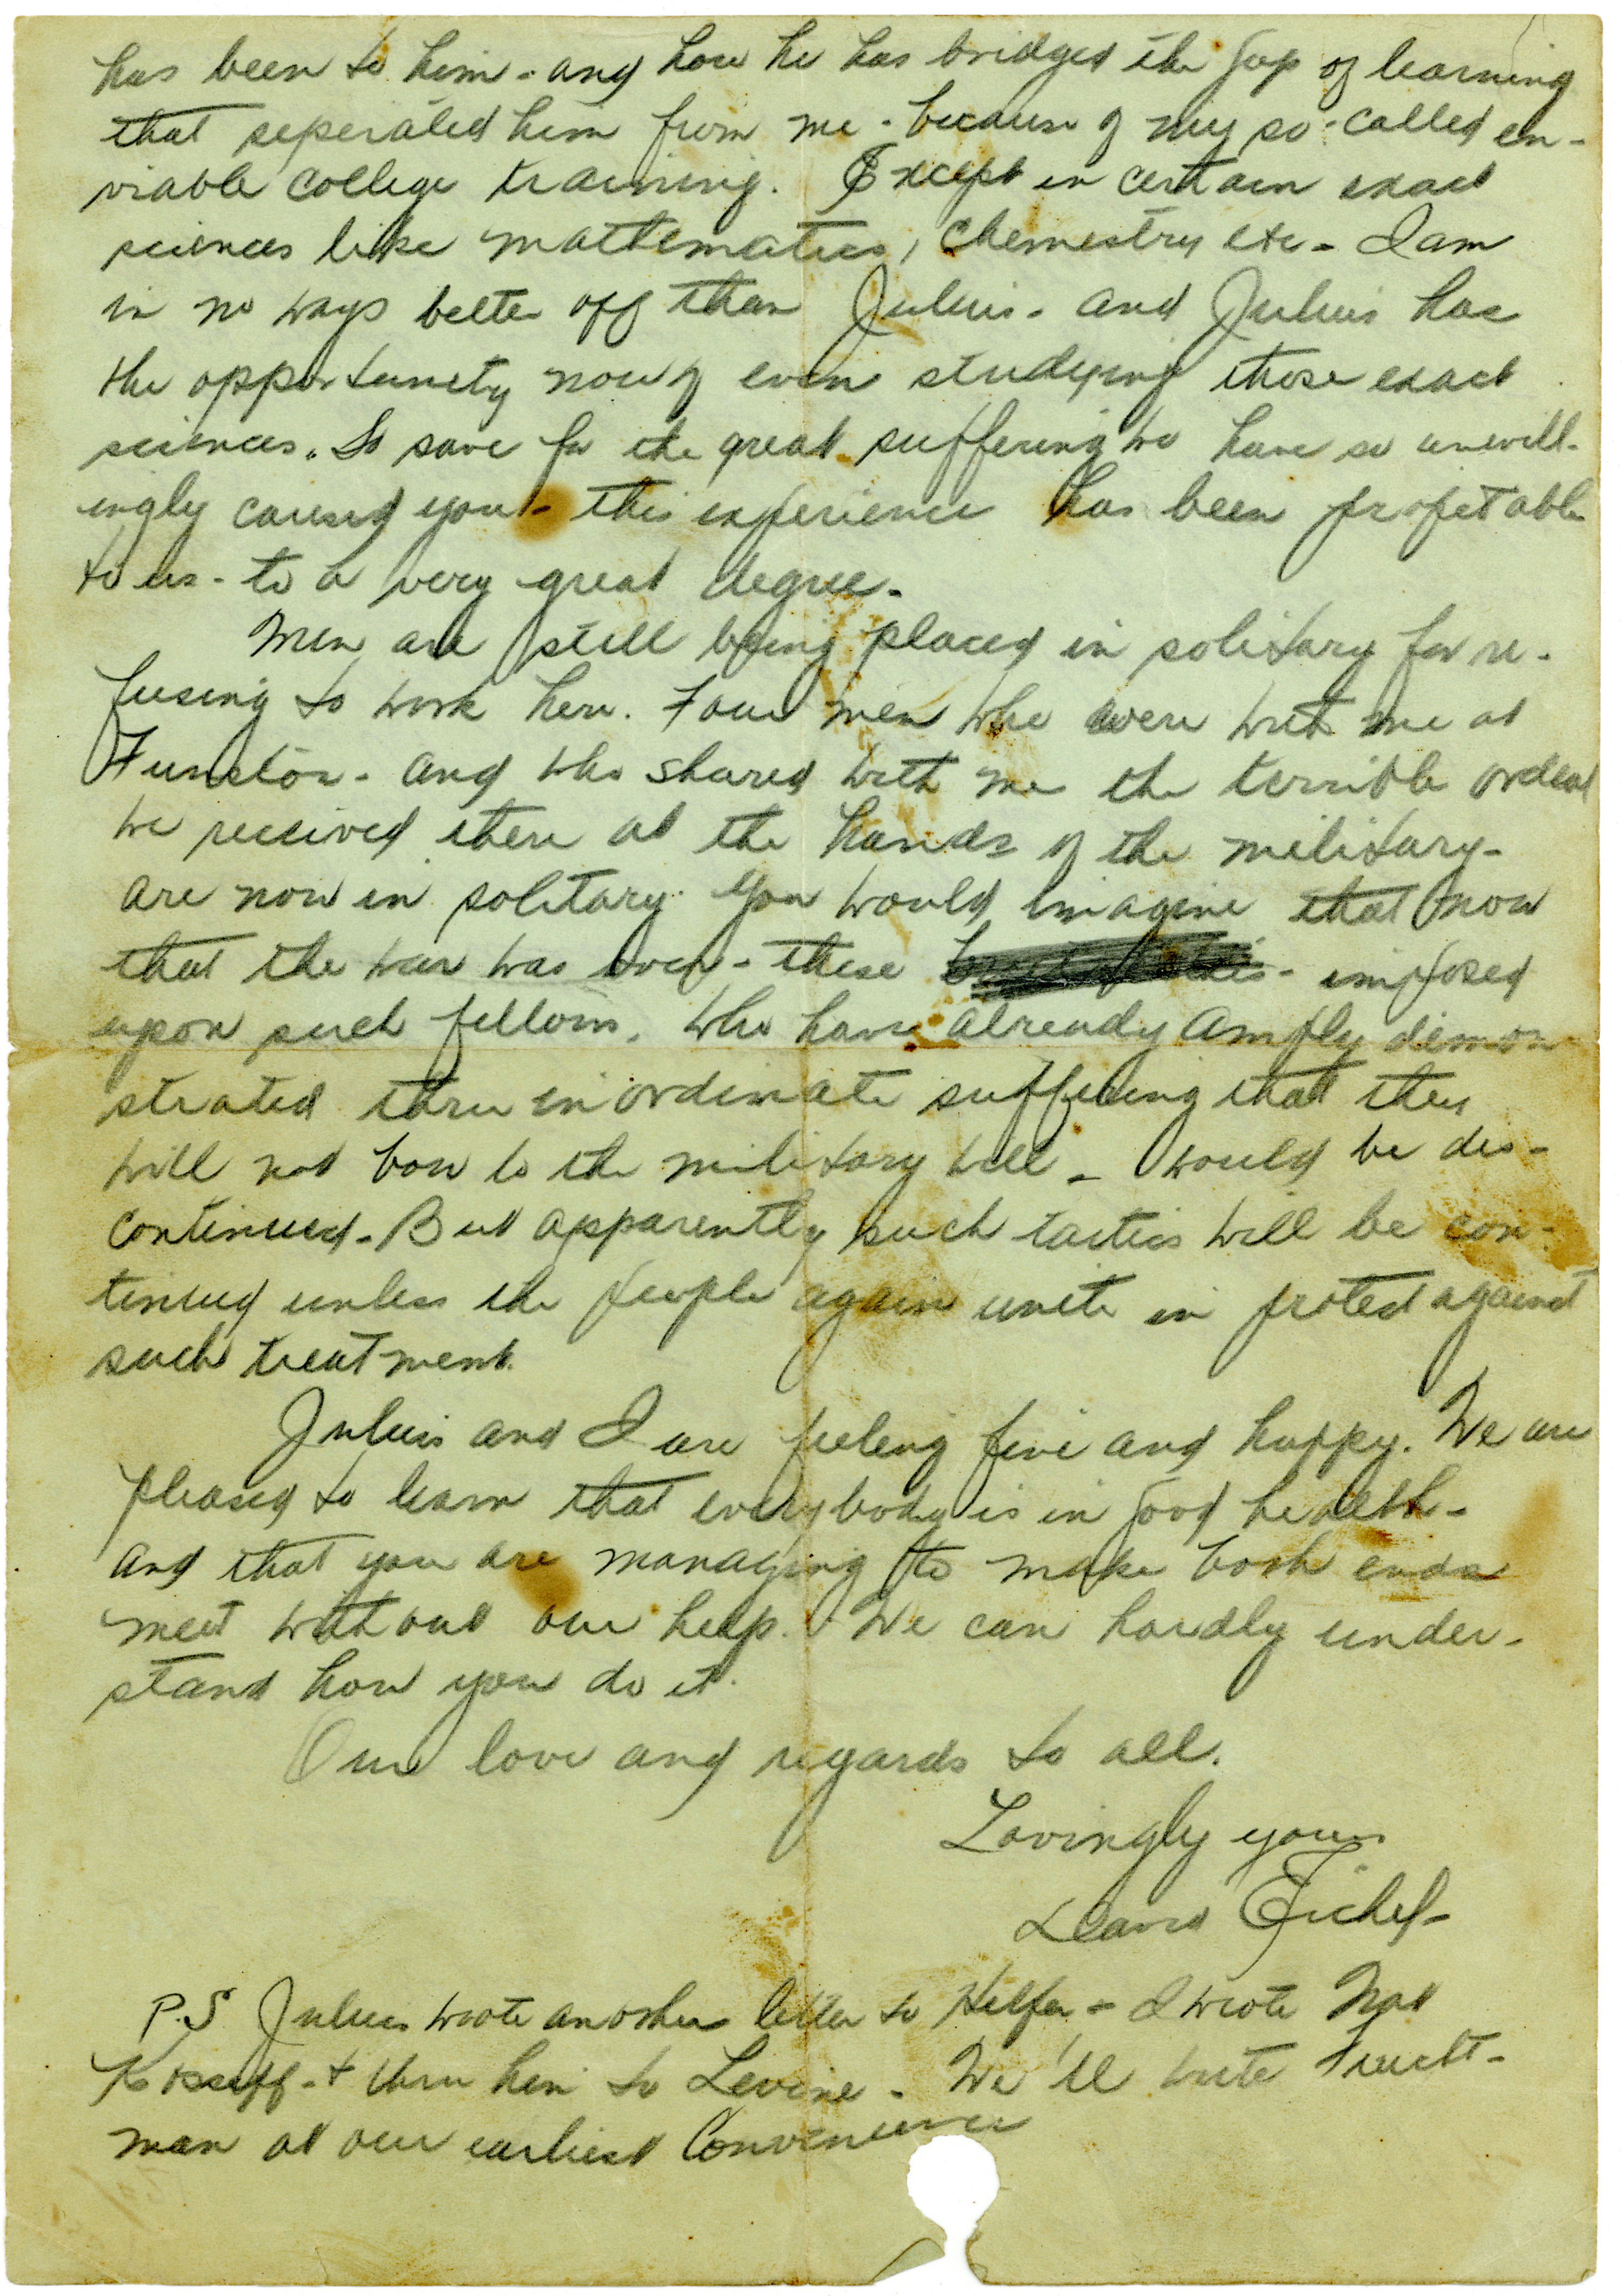 has been to him - and how he has bridged the gap of learning
that seperated him from me - because of my so-called en-
viable college training. Except in certain exact
sciences like mathematics, chemestry etc - I am
in no ways better off than Julius - and Julius has
the opportunity now of even studying those exact
sciences. So save for the great suffering we have so unwill-
ingly caused you - this experience has been profitable
to us - to a very great degree.
Men are still being placed in solitary for re-
fusing to work here. Four men who were with me at
Funston - and who shared with me the terrible ordeal
we received there at the hands of the military -
are now in solitary. You would imagine that now
that the war was over - these - imposed
upon such fellows, who have already amply demon
strated thru inordinate suffering that they
will not bow to the military will - would be dis-
continued - But apparently such tactics will be con-
tinued unless the people again unite in protest against
such treatment.
Julius and I are feeling fine and happy. We are
pleased to learn that everybody is in good health -
and that you are managing to make both ends
meet without our help. We can hardly under-
stand how you do it.
Our love and regards to all.
Lovingly yours
David Eichel -
P.S Julius wrote another letter to Helfer - I wrote Nat
Kossuff - + thru him to Levine - We'll write Frucht-
man at our earliest convenience